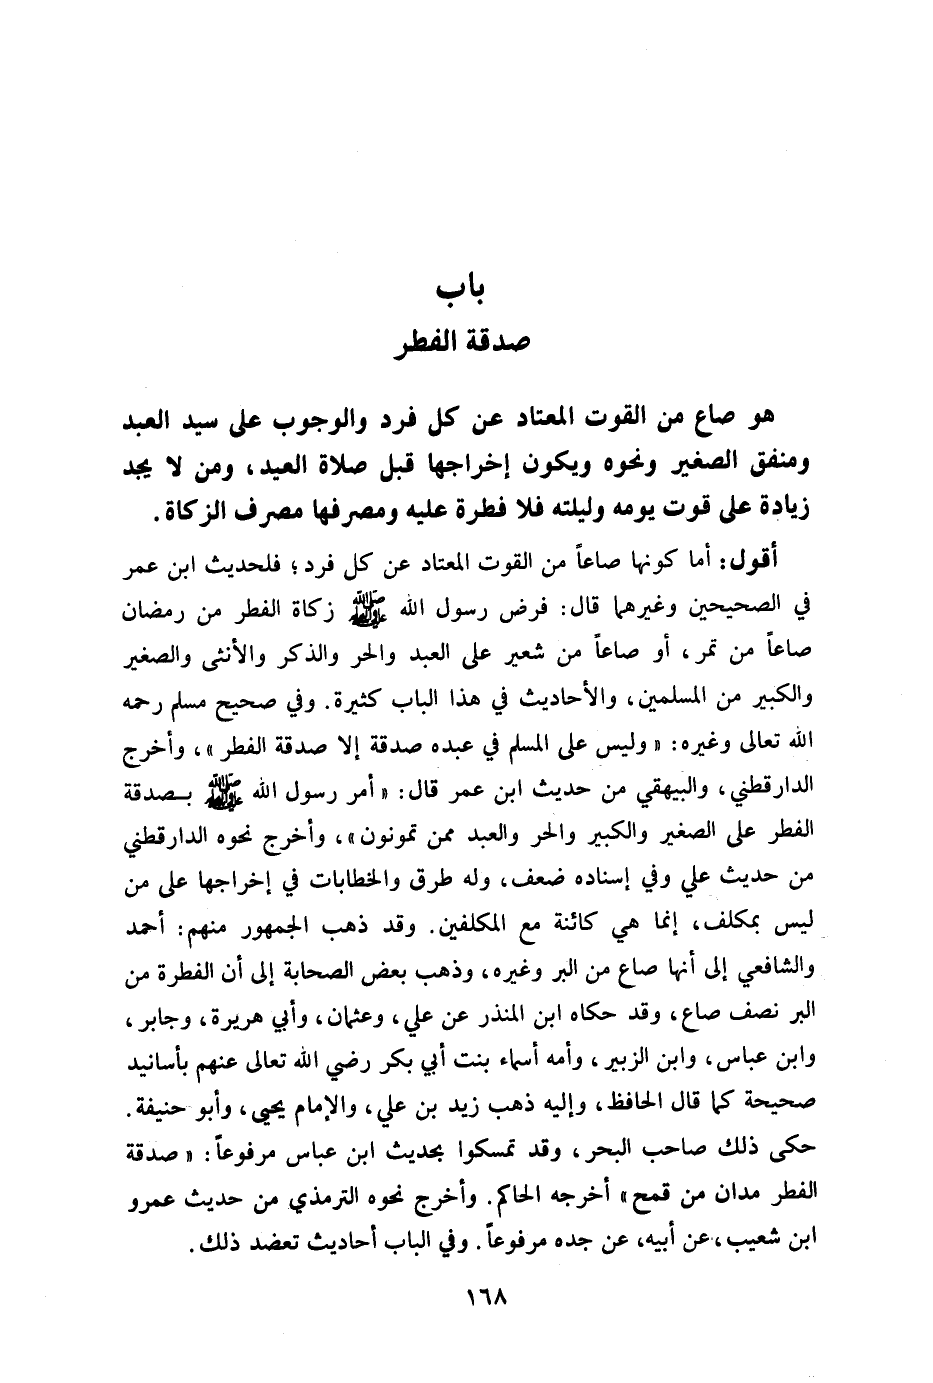 باب
صدقة الفطر
هو صاع من القوت المعتاد عن كل فرد والوجوب على سيد العبد
ومنفق الصغير ونحوه ويكون إخراجها قبل صلاة العيد، ومن لا يجد
زيادة على قوت يومه وليلته فلا فطرة عليه ومصرفها مصرف الزكاة.
أقول: أما كونها صاعاً من القوت المعتاد عن كل فرد؛ فلحديث ابن عمر
في الصحيحين وغيرهما قال: فرض رسول الله ﷺ زكاة الفطر من رمضان
صاعاً من تمر، أو صاعاً من شعير على العبد والحر والذكر والأنثى والصغير
والكبير من المسلمين، والأحاديث في هذا الباب كثيرة. وفي صحيح مسلم رحمه
الله تعالى وغيره: «وليس على المسلم في عبده صدقة إلا صدقة الفطر»، وأخرج
الدارقطني، والبيهقي من حديث ابن عمر قال: «أمر رسول الله ﷺ بصدقة
الفطر على الصغير والكبير والحر والعبد ممن تمونون»، وأخرج نحوه الدارقطني
من حديث علي وفي إسناده ضعف، وله طرق والخطابات في إخراجها على من
ليس بمكلف، إنما هي كائنة مع المكلفين. وقد ذهب الجمهور منهم: أحمد
والشافعي إلى أنها صاع من البر وغيره، وذهب بعض الصحابة إلى أن الفطرة من
البر نصف صاع، وقد حكاه ابن المنذر عن علي، وعثمان، وأبي هريرة، وجابر،
وابن عباس، وابن الزبير، وأمه أسماء بنت أبي بكر رضي الله تعالى عنهم بأسانيد
صحيحة كما قال الحافظ، وإليه ذهب زيد بن علي، والإمام يحيى، وأبو حنيفة.
حكى ذلك صاحب البحر، وقد تمسكوا بحديث ابن عباس مرفوعاً: «صدقة
الفطر مدان من قمح» أخرجه الحاكم. وأخرج نحوه الترمذي من حديث عمرو
ابن شعيب، عن أبيه، عن جده مرفوعاً. وفي الباب أحاديث تعضد ذلك.
١٦٨